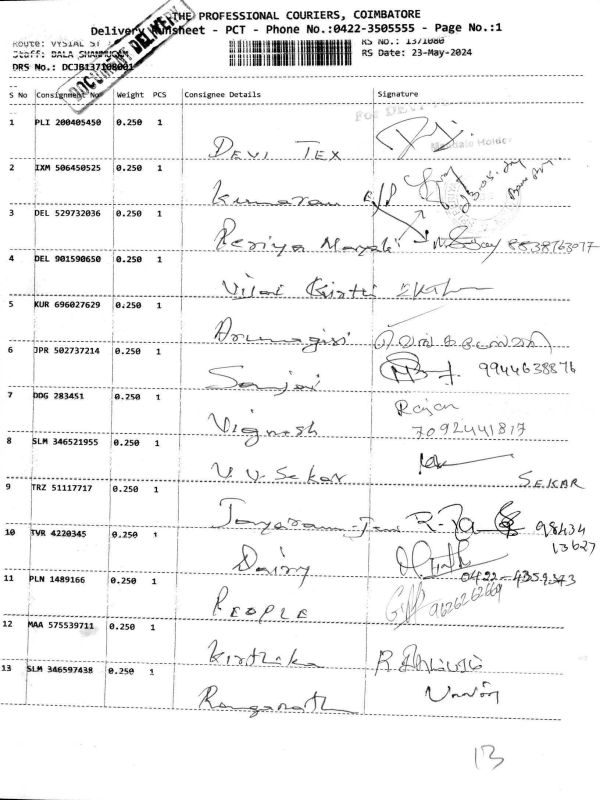 THE PROFESSIONAL COURIERS, COIMBATORE
Delivery Runsheet - PCT - Phone No.:0422-3505555 - Page No.:1
Route: VYSIAL ST
RS No.: 1371080
Staff: BALA SHANMUGAM
RS Date: 23-May-2024
DRS No.: DCJB137108001
DOCUMENT DELIVERY
S No Consignment No Weight PCS Consignee Details Signature
1 PLI 200405450 0.250 1 DEVI TEX
2 IXM 506450525 0.250 1 Kumaran
3 DEL 529732036 0.250 1 Periya 8538763017
4 DEL 901590650 0.250 1 Vijai Kirthi
5 KUR 696027629 0.250 1 Arunagiri
6 JPR 502737214 0.250 1 Sanjai 9944638876
7 DDG 283451 0.250 1 Vignesh Rajan 7092441817
8 SLM 346521955 0.250 1 V.V. Sekar SEKAR
9 TRZ 51117717 0.250 1 Jayaram 98434 13627
10 TVR 4220345 0.250 1 Dairy 0422-4359343
11 PLN 1489166 0.250 1 PEOPLE 9626262669
12 MAA 575539711 0.250 1 Kirthika
13 SLM 346597438 0.250 1 Ranganath
13